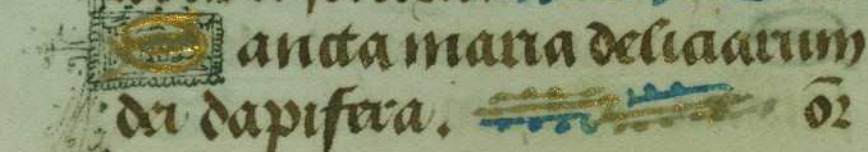 Sancta maria deliciarum
dei dapifera. or̄